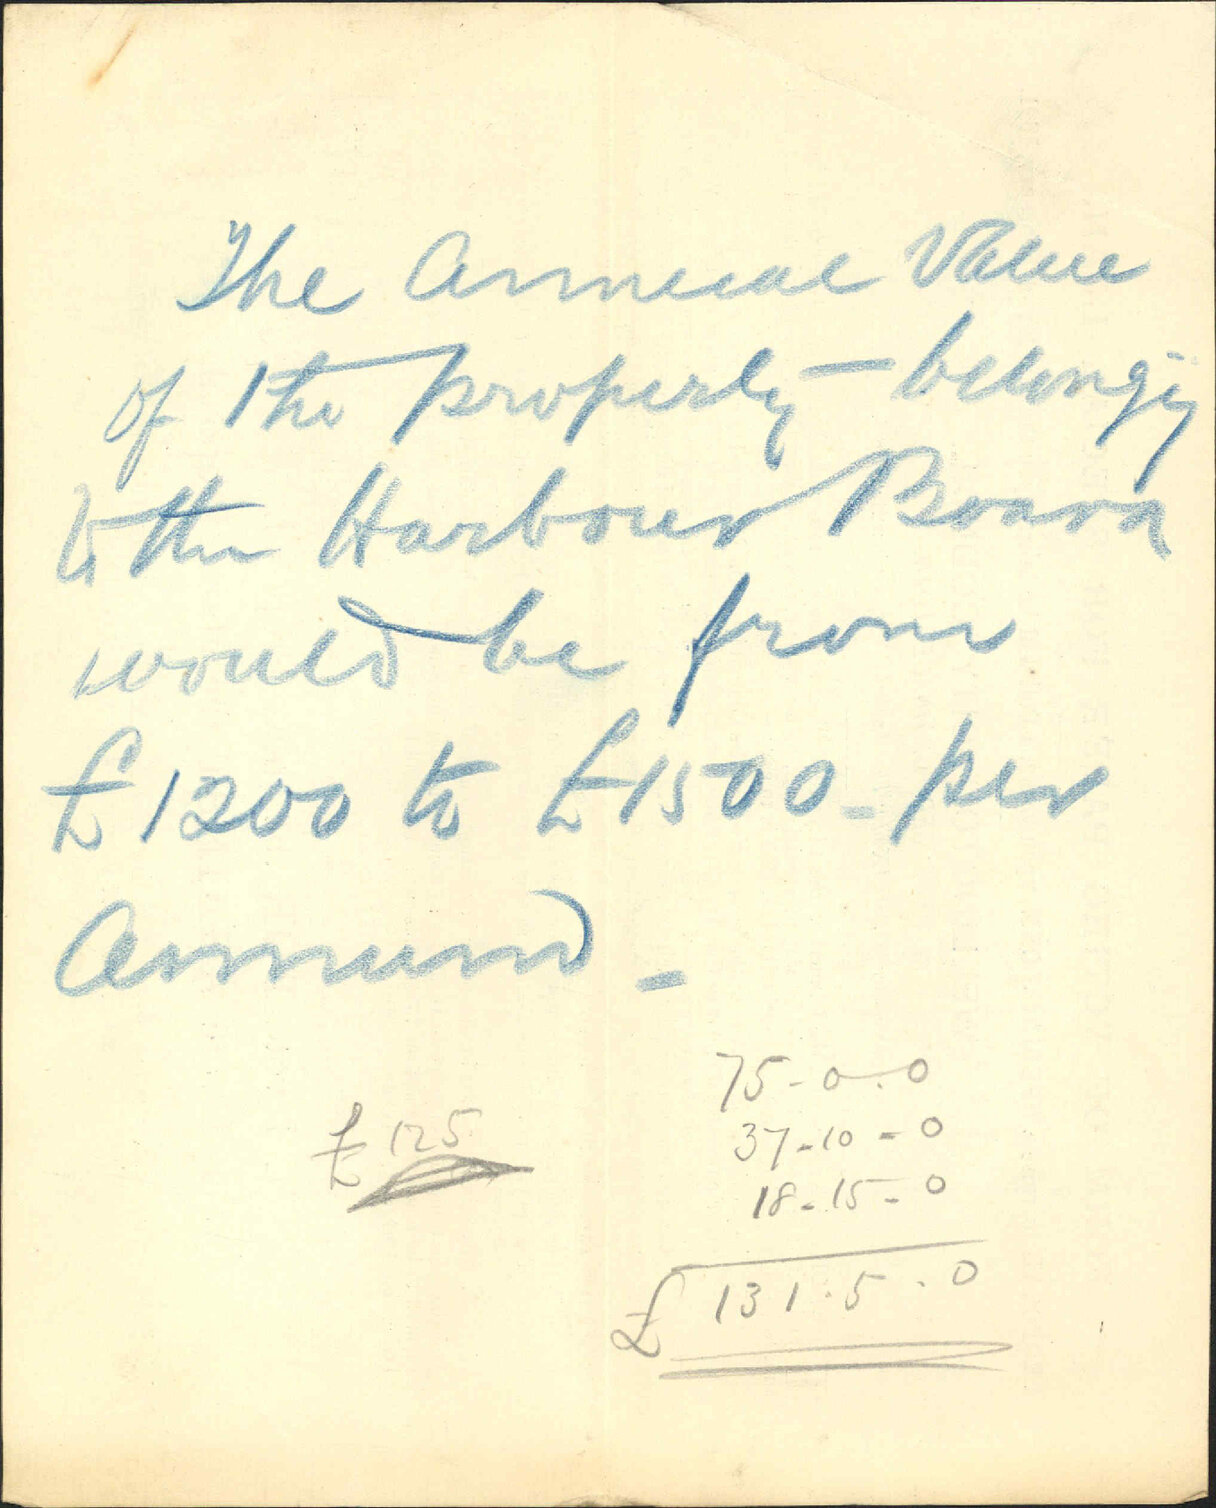 The Annual Value
of the property - belonging
to the Harbour Board
would be from
£1200 to £1500 - per
Annum -
£125
75 - 0 . 0
37 - 10 - 0
18 - 15 - 0
£ 131 . 5 . 0